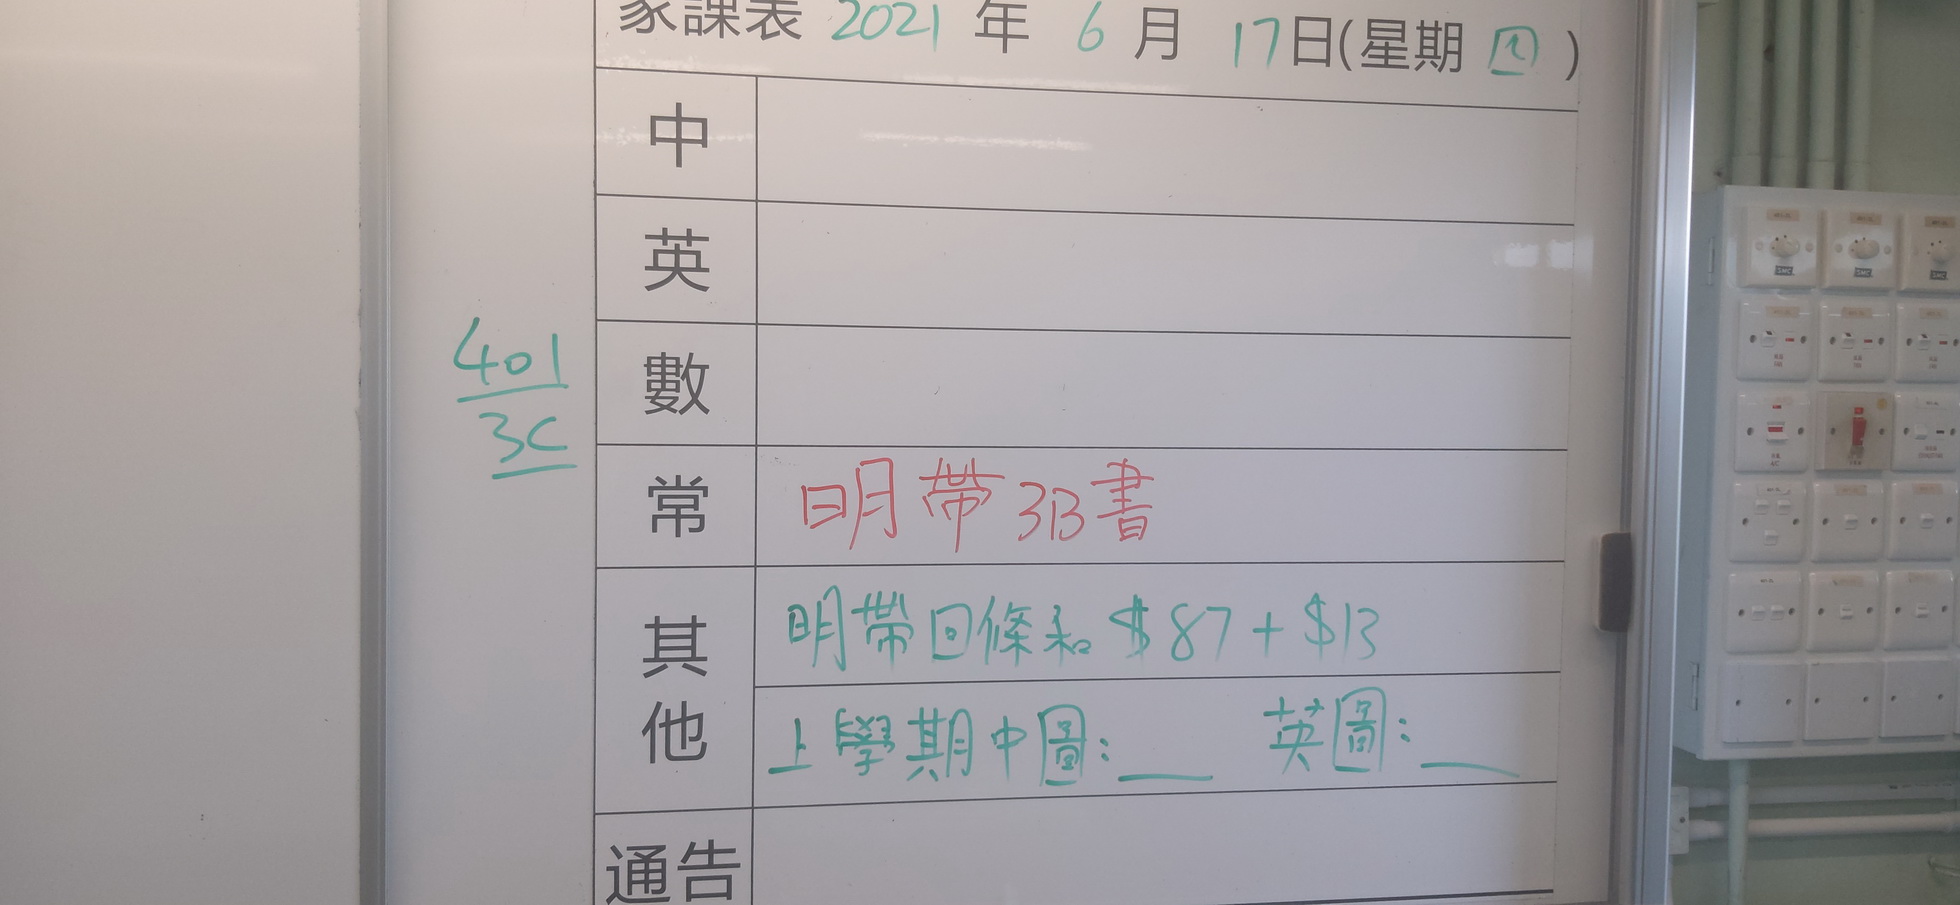 家課表 2021 年 6 月 17日(星期 四)
中
英
數
401
3C
常 明帶3B書
其他 明帶回條和 $87 + $13
上學期中圖:___ 英圖:___
通告
SMC SMC SMC